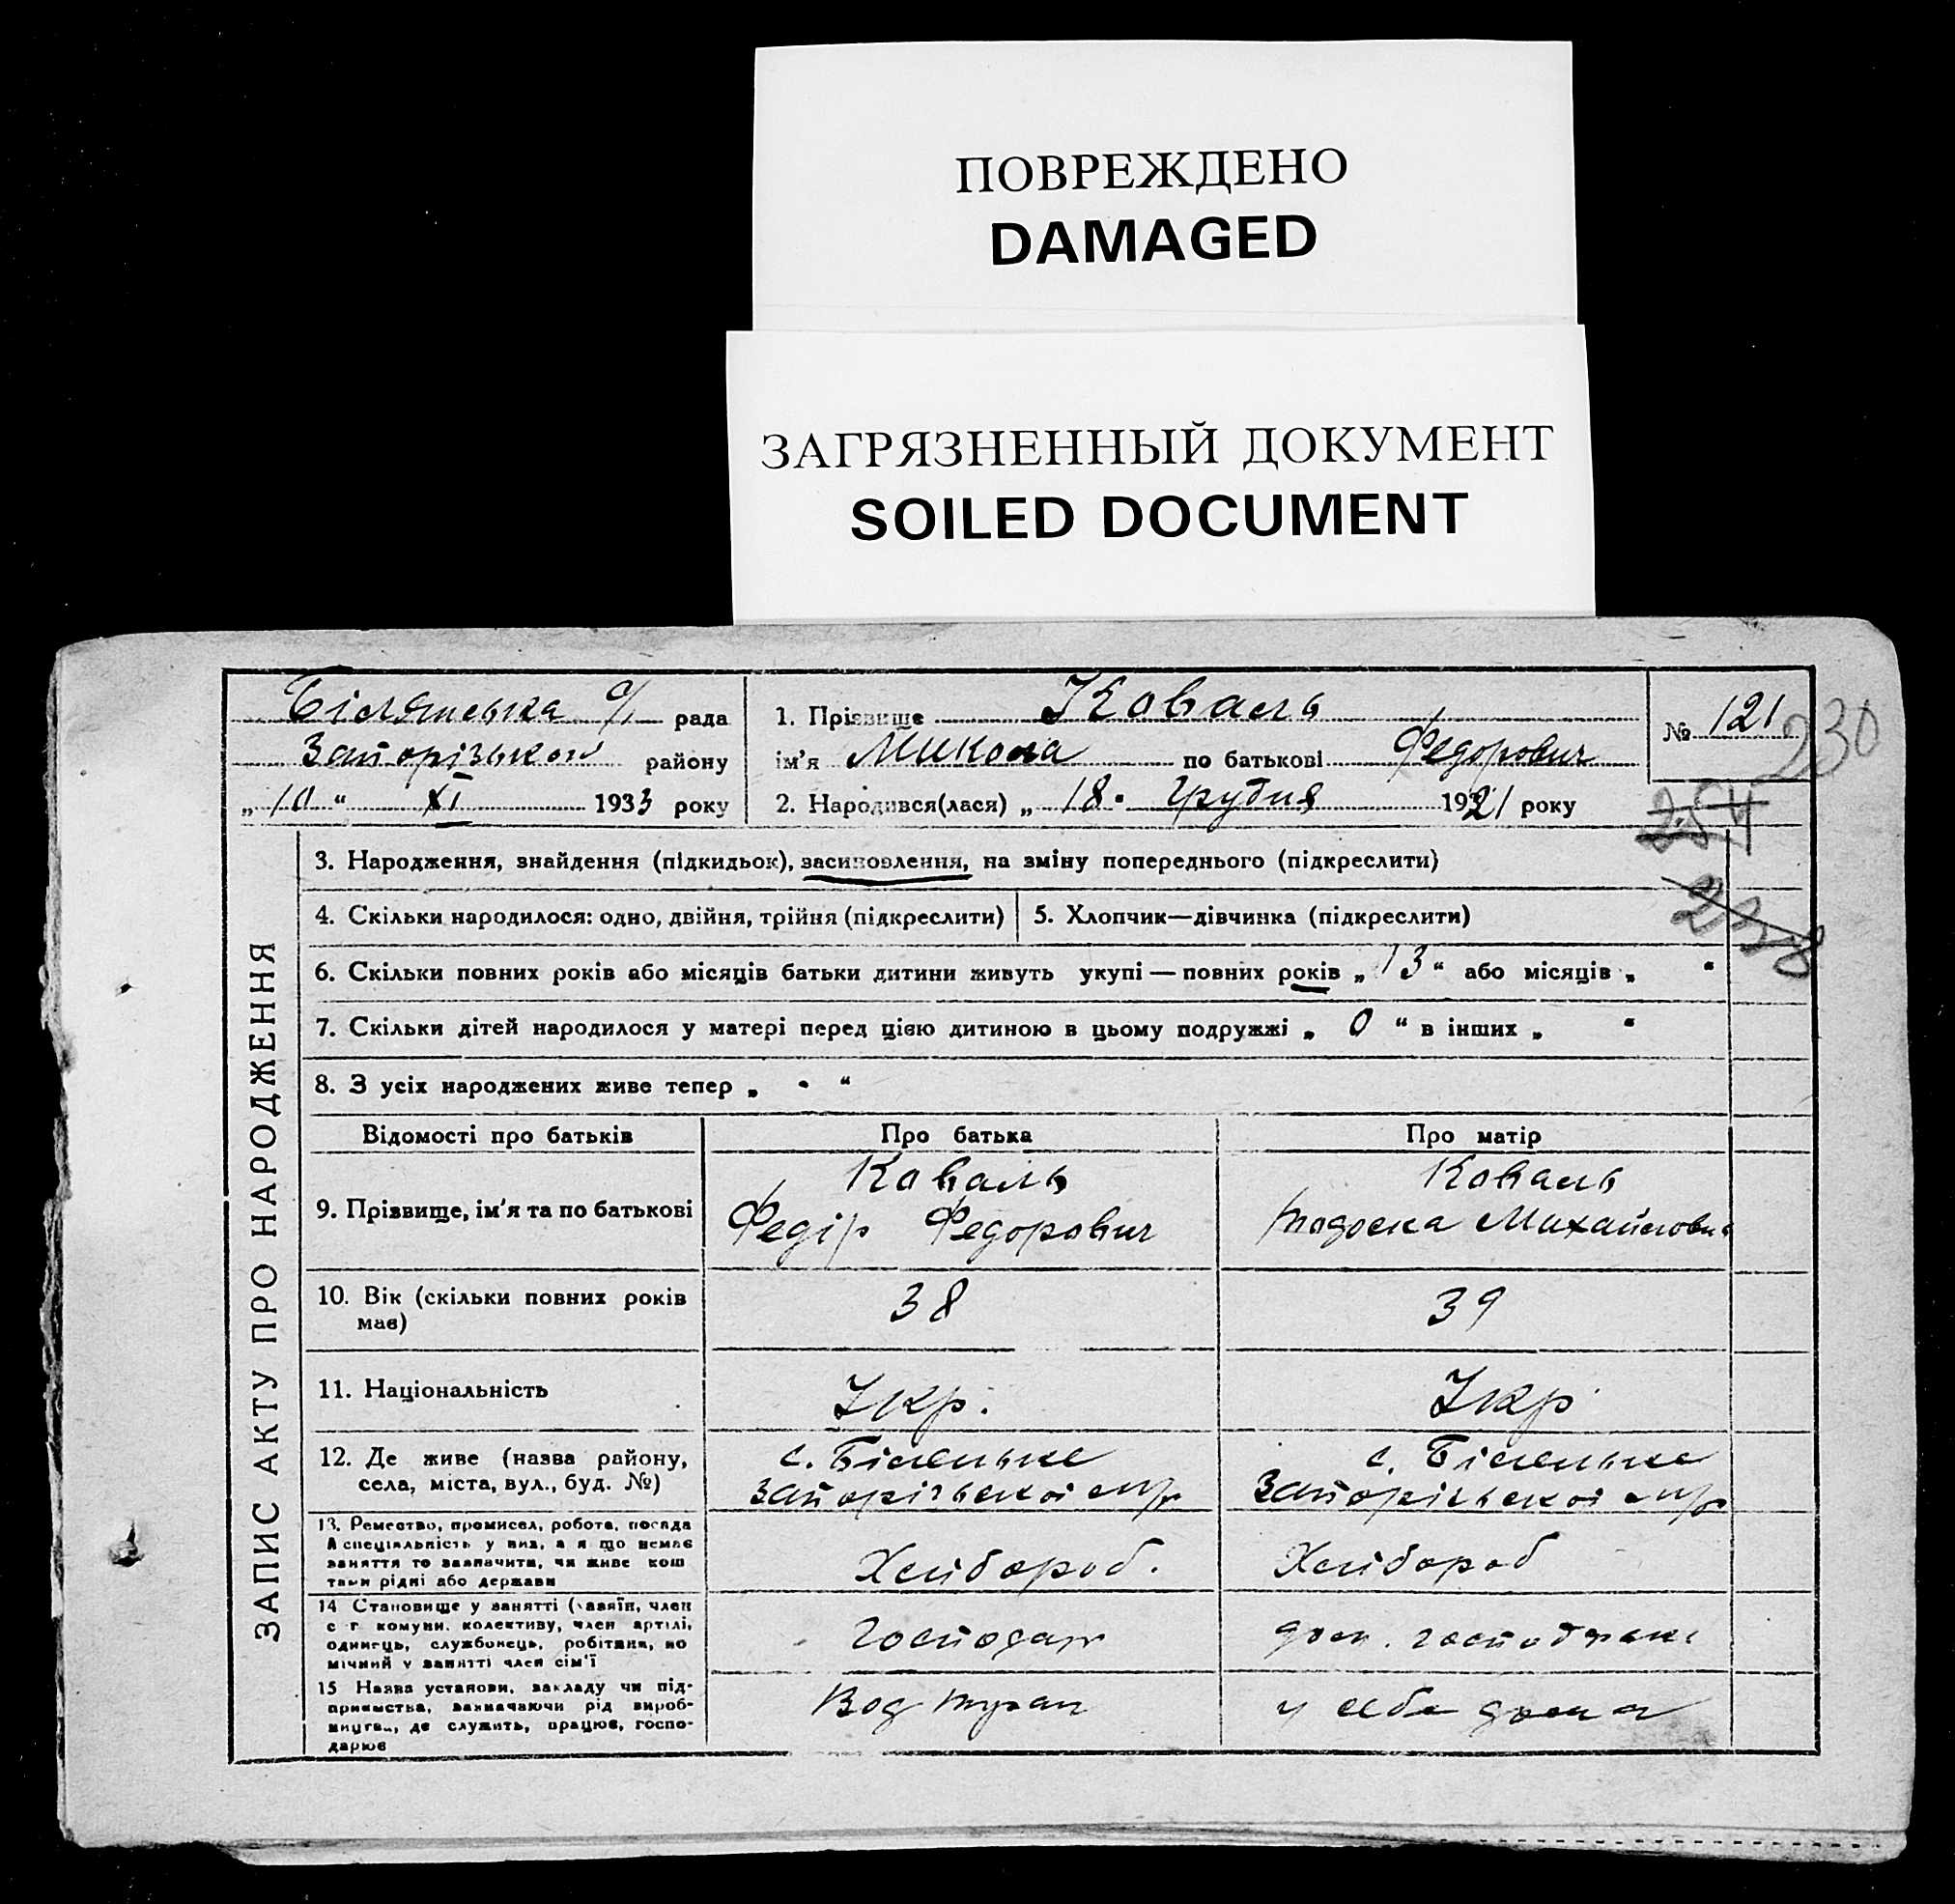 ПОВРЕЖДЕНО
DAMAGED
ЗАГРЯЗНЕННЫЙ ДОКУМЕНТ
SOILED DOCUMENT
с/ рада
району
„ 10 “ XI 1933 року
1. Прізвище Коваль
ім’я Микола по батькові Федорович
2. Народився(лася) „ 18. Грудня 1921 року
№ 121
230
254
238
ЗАПИС АКТУ ПРО НАРОДЖЕННЯ
3. Народження, знайдення (підкидьок), засиновлення, на зміну попереднього (підкреслити)
4. Скільки народилося: одно, двійня, трійня (підкреслити)
5. Хлопчик—дівчинка (підкреслити)
6. Скільки повних років або місяців батьки дитини живуть укупі — повних років „ 13 “ або місяців „ “
7. Скільки дітей народилося у матері перед цією дитиною в цьому подружжі „ 0 “ в інших „ “
8. З усіх народжених живе тепер „ “
Відомості про батьків
Про батька
Про матір
9. Прізвище, ім’я та по батькові
Коваль
Федір Федорович
Коваль
10. Вік (скільки повних років
має)
38
39
11. Національність
Укр.
Укр
12. Де живе (назва району,
села, міста, вул., буд. №)
с. Біленьке
с. Біленьке
13. Ремество, промисел, робота, посада
А спеціяльність у них, а я що немає
заняття то зазначити, чи живе кош
тами рідні або держави
Хлібороб.
Хлібороб
14 Становище у занятті (хазяїн, член
с г комуни, колективу, член артілі,
одинець, службовець, робітник, по
мічний у занятті член сім’ї
Господар
15 Назва установи, закладу чи під-
приємства, зазначаючи рід вироб-
ництва, де служить, працює, госпо-
дарює
у себе дома